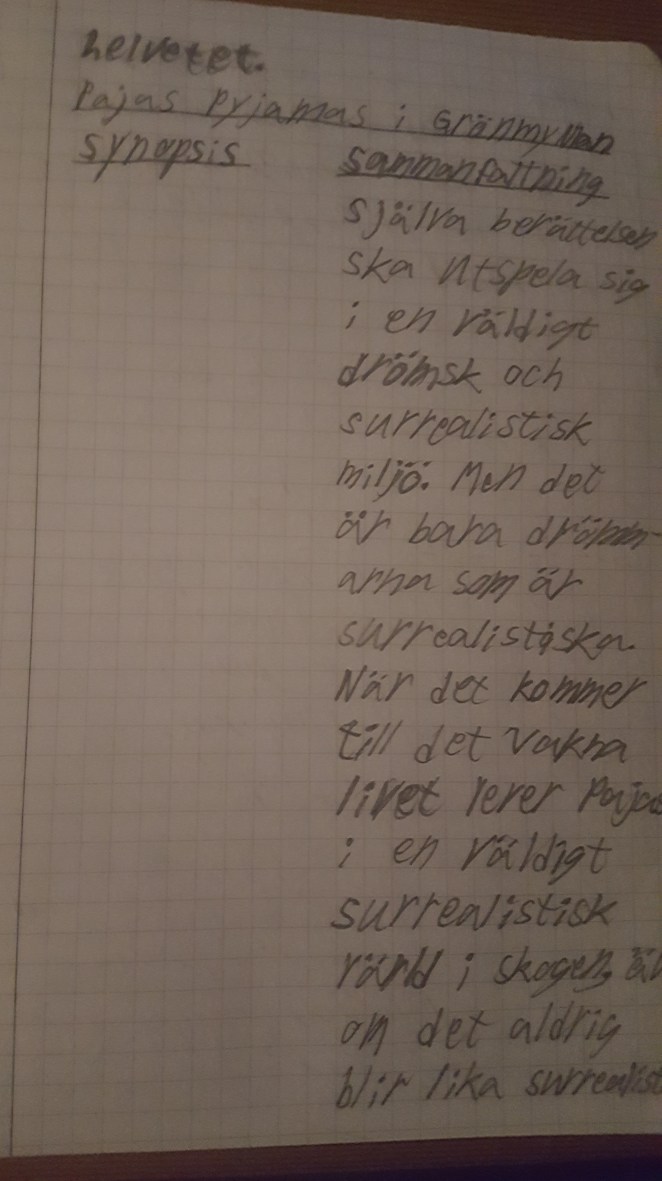 helvetet.
Pajas Pyjamas i Gränmyllan
synopsis sammanfattning
själva berättelsen
ska utspela sig
i en väldigt
drömsk och
surrealistisk
miljö. Men det
är bara drömm-
arna som är
surrealistiska.
När det kommer
till det vakna
livet lever Pajas
i en väldigt
surrealistisk
värld i skogen,
om det aldrig
blir lika